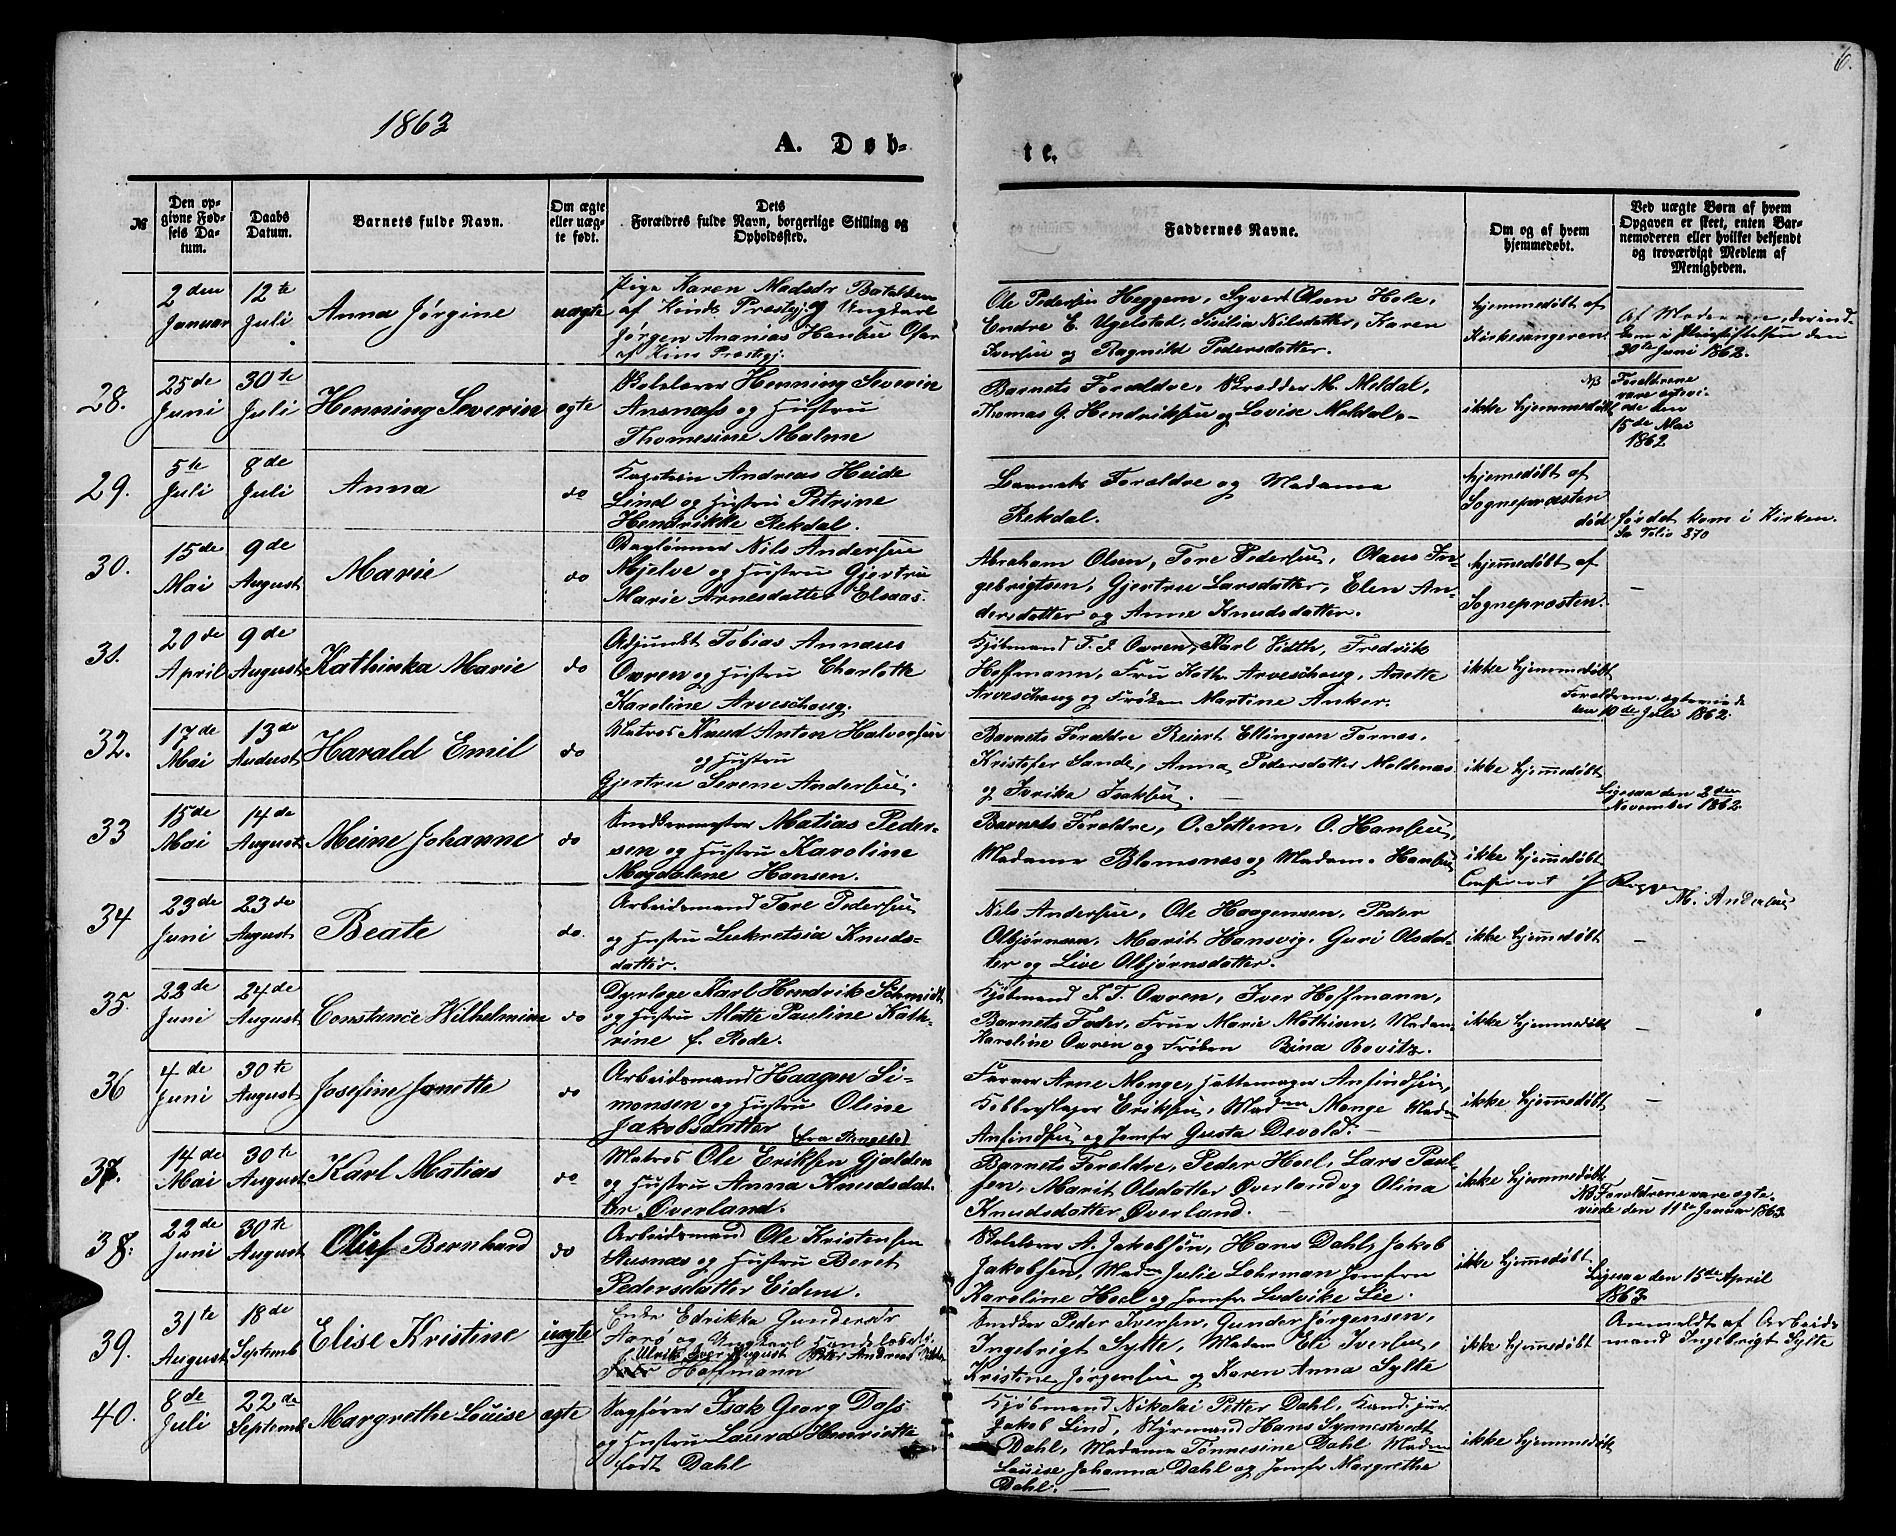 6.
1863
A. Døb-
te.
№
Den op-
givne Fød-
sels Da-
tum.
Daabs
Datum.
Barnets fulde Navn.
Om ægte
eller uæg-
te født.
Dets
Forældres fulde Navn, borgerlige Stilling og
Opholdssted.
Faddernes Navne.
Om og af hvem
hjemmedøbt.
Ved uægte Børn af hvem
Opgaven er skeet, enten Bar-
nemoderen eller hvilket bekjendt
og troværdigt Medlem af
Menigheden.
2den
Januar
12te
Juli
Anna Jørgine
uægte
Pige Karen Madsdr Batalden
af Kinds Præstgj. og Ungkarl
Jørgen Ananias Hansen
af Kins Præstgj.
Ole Pedersen Heggem, Syvert Olsen Hole,
Endre E. Ugelstad, Sicilia Nilsdatter, Karen
Iversen og Ragnild Pedersdatter.
hjemmedøbt af
Kirkesangeren
Af Moderen, der ind-
kom i Pleiestiftelsen den
30te Juni 1863.
28.
25de
Juni
30te
Juli
Henning Severin
ægte
Henning Severin
Ansnæss og Hustru
Thomesine Malme
Barnets Forældre, Skrædder M. Meldal,
Thomas G. Hendriksen og Lovise Meldal.
ikke hjemmedøbt
NB
Forældrene
vare ægtevi-
ede den
15de Mai
1862
29.
5te
Juli
8de
Juli
Anna
do
Kaptein Andreas Heide
Lind og Hustru Petrine
Hendrikke Rekdal.
Barnets Forældre og Madame
Rekdal.
hjemmedøbt af
Sognepræsten
død førdet kom i Kirken.
Se Folio 370
30.
15de
Mai
9de
August
Marie
do
Daglønner Nils Andersen
Mjelve og Hustru Gjertru
Marie Arnesdatter Elsaas.
Abraham Olsen, Tore Pedersen, Olaus In-
gebrigtsen, Gjertru Larsdatter, Elen An-
dersdatter og Anne Knudsdatter.
hjemmedøbt af
Sognepræsten.
31.
20de
April
9de
August
Kathinka Marie
do
Adjunkt Tobias Annæus
Owren og Hustru Charlotte
Karoline Arveschoug.
Kjøbmand T. T. Owren, Karl Vidth, Fredrik
Hoffmann, Fru Kath. Arveschoug, Anette
Arveschoug og Frøken Martine Anker.
ikke hjemmedøbt
Forældrene ægteviede
den 10de Juli 1862.
32.
17de
Mai
13de
August
Harald Emil
do
Matros Knud Anton Halvorsen
og Hustru
Gjertru Serene Andersen.
Barnets Forældre Reiert Ellingsen Tornæs,
Kristofer Sande, Anna Pedersdatter Moldenæs
og Isaksen.
ikke hjemmedøbt
Ligesaa den 2den
November 1862.
33
15de
Mai
14de
August
Meine Johanne
do
Snedkermester Matias Peder-
sen og Hustru Karoline
Magdalene Hansen.
Barnets Forældre, O. Settem, O. Hansen,
Madame Blomsnæs og Madam. Hansen
ikke hjemmedøbt
M. Andersen
34
23de
Juni
23de
August
Beate
do.
Arbeidsmand Tore Pedersen
og Hustru Lukretsia Knuds-
datter.
Nils Andersen, Ole Haagensen, Peder
Olbjørnsen, Marit Hansvig, Guri Olsdat-
ter og Live Olbjørnsdatter.
ikke hjemmedøbt
35.
22de
Juni
24de
August
Constance Wilhelmine
do
Dyrlæge Karl Hendrik Schmidt
og Hustru Alette Pauline Kath-
rine f. Rode.
Kjøbmand T. T. Owren, Iver Hoffmann,
Barnets Fader, Frue Marie Mathisen, Madam
Karoline Owren og Frøken Bina Bovitz.
ikke hjemmedøbt
36
4de
Juni
30te
August
Josefine Janette
do
Arbeidsmand Haagen Si-
monsen og Hustru Oline
Jakobsdatter
Farver Arne Monge, Hattemager Anfindsen,
Kobberslager Eriksen, Madmn Monge Madm
Anfindsen og Jomfr Gusta Devold.
ikke hjemmedøbt
37.
14de
Mai
30te
August
Karl Matias
do
Matros Ole Eriksen Gjelden
og Hustru Anna Knudsdat-
ter Øverland.
Barnets Forældre, Peder Hoel, Lars Paul
sen, Marit Olsdatter Øverland og Olina
Knudsdatter Øverland.
ikke hjemmedøbt
NB Forældrene vare ægte-
viede den 11te Januar 1863.
38.
22de
Juni
30te
August
Oluf Bernhard
do
Arbeidsmand Ole Kristensen
og Hustru Beret
Pedersdatter Eidem.
A. Jakobsøn, Hans Dahl, Jakob
Jakobsen, Madmn Julie Lohrman Jomfru
Karoline Hoel og Jomfr Ludvike Lie.
ikke hjemmedøbt
Ligesaa den 15de April
1863.
39.
31te
August
18de
Septemb
Elise Kristine
uægte
Enke Edrikka Gundersdr
Aarø og Ungkarl Handelsbetj.
Ulrik Iver August
Hoffmann
Snedker Peder Iversen, Gunder Jørgensen,
Ingebrigt Sylte, Madam Eli Iversen,
Kristine Jørgensen og Karen Anna Sylte
ikke hjemmedøbt
Anmeldt af Arbeids
mand Ingebrigt Sylte
40.
8de
Juli
22de
Septemb
Margrethe Louise
ægte
Sagfører Isak Georg Dass
og Hustru Laura Henriette
født Dahl
Kjøbmand Nikolai Petter Dahl, Kand. jur.
Jakob Lind, Styrmand Hans Synnestvedt
Dahl, Madame Tønnesine Dahl Madm
Louise Johanna Dahl og Jomfr Margrethe
Dahl.
ikke hjemmedøbt